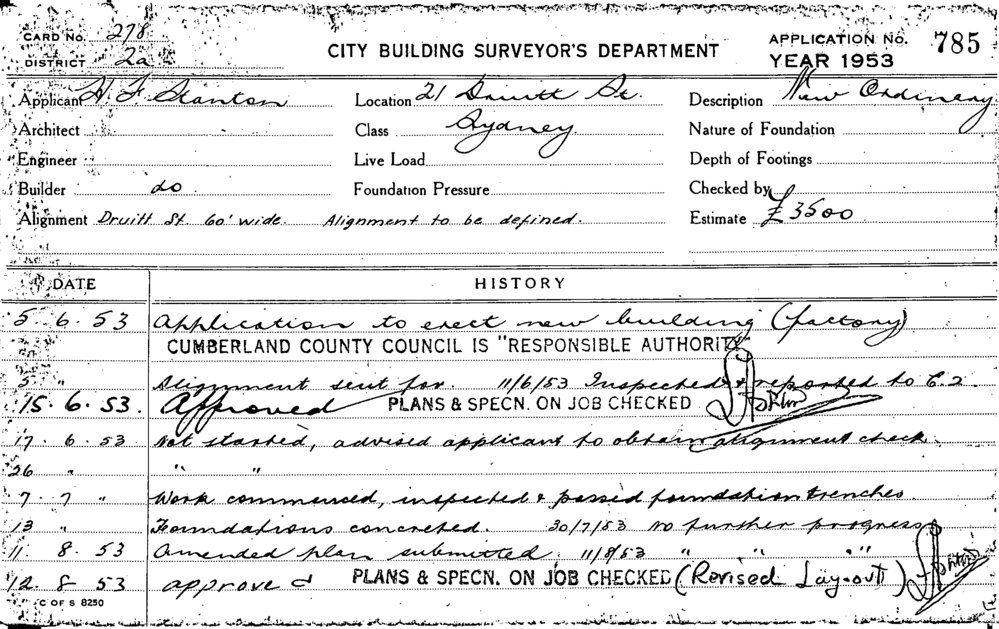 CARD No. 278
DISTRICT 2a
CITY BUILDING SURVEYOR'S DEPARTMENT
APPLICATION No. 785
YEAR 1953
Applicant H. F. Stanton Location 21 Druitt St. Description New Ordinery
Architect Class Sydney Nature of Foundation
Engineer Live Load Depth of Footings
Builder do Foundation Pressure Checked by
Alignment Druitt St 60' wide. Alignment to be defined. Estimate £3500
DATE HISTORY
5. 6. 53 Application to erect new building (factory)
CUMBERLAND COUNTY COUNCIL IS "RESPONSIBLE AUTHORITY"
5 " Alignment sent for. 11/6/53 Inspected & reported to C.2.
15. 6. 53. Approved PLANS & SPECN. ON JOB CHECKED
17. 6. 53 Not started, advised applicant to obtain alignment check.
26 " " "
7. 7 " Work commenced, inspected & passed foundation trenches.
13 " Foundations concreted. 30/7/53 No further progress
11. 8. 53 Amended plan submitted. 11/8/53 " " "
12. 8. 53 approved PLANS & SPECN. ON JOB CHECKED (Revised Lay-out)
C OF S 8250